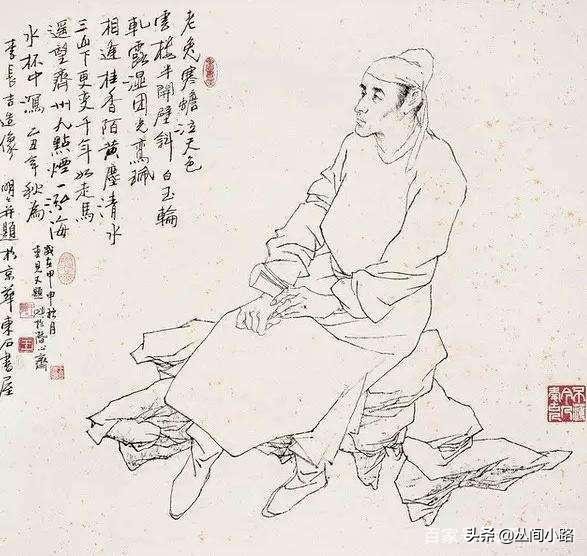 老兔寒蟾泣天色
雲樓半開壁斜白玉輪
軋露湿团光鸞珮
相逢桂香陌黄塵清水
三山下更變千年如走馬
遥望齊州九點煙一泓海
水杯中瀉 乙丑年秋為
李長吉造像 明明并題於京華東石書屋
歲在甲申秋月
重見又題
百家
头条 @丛间小路